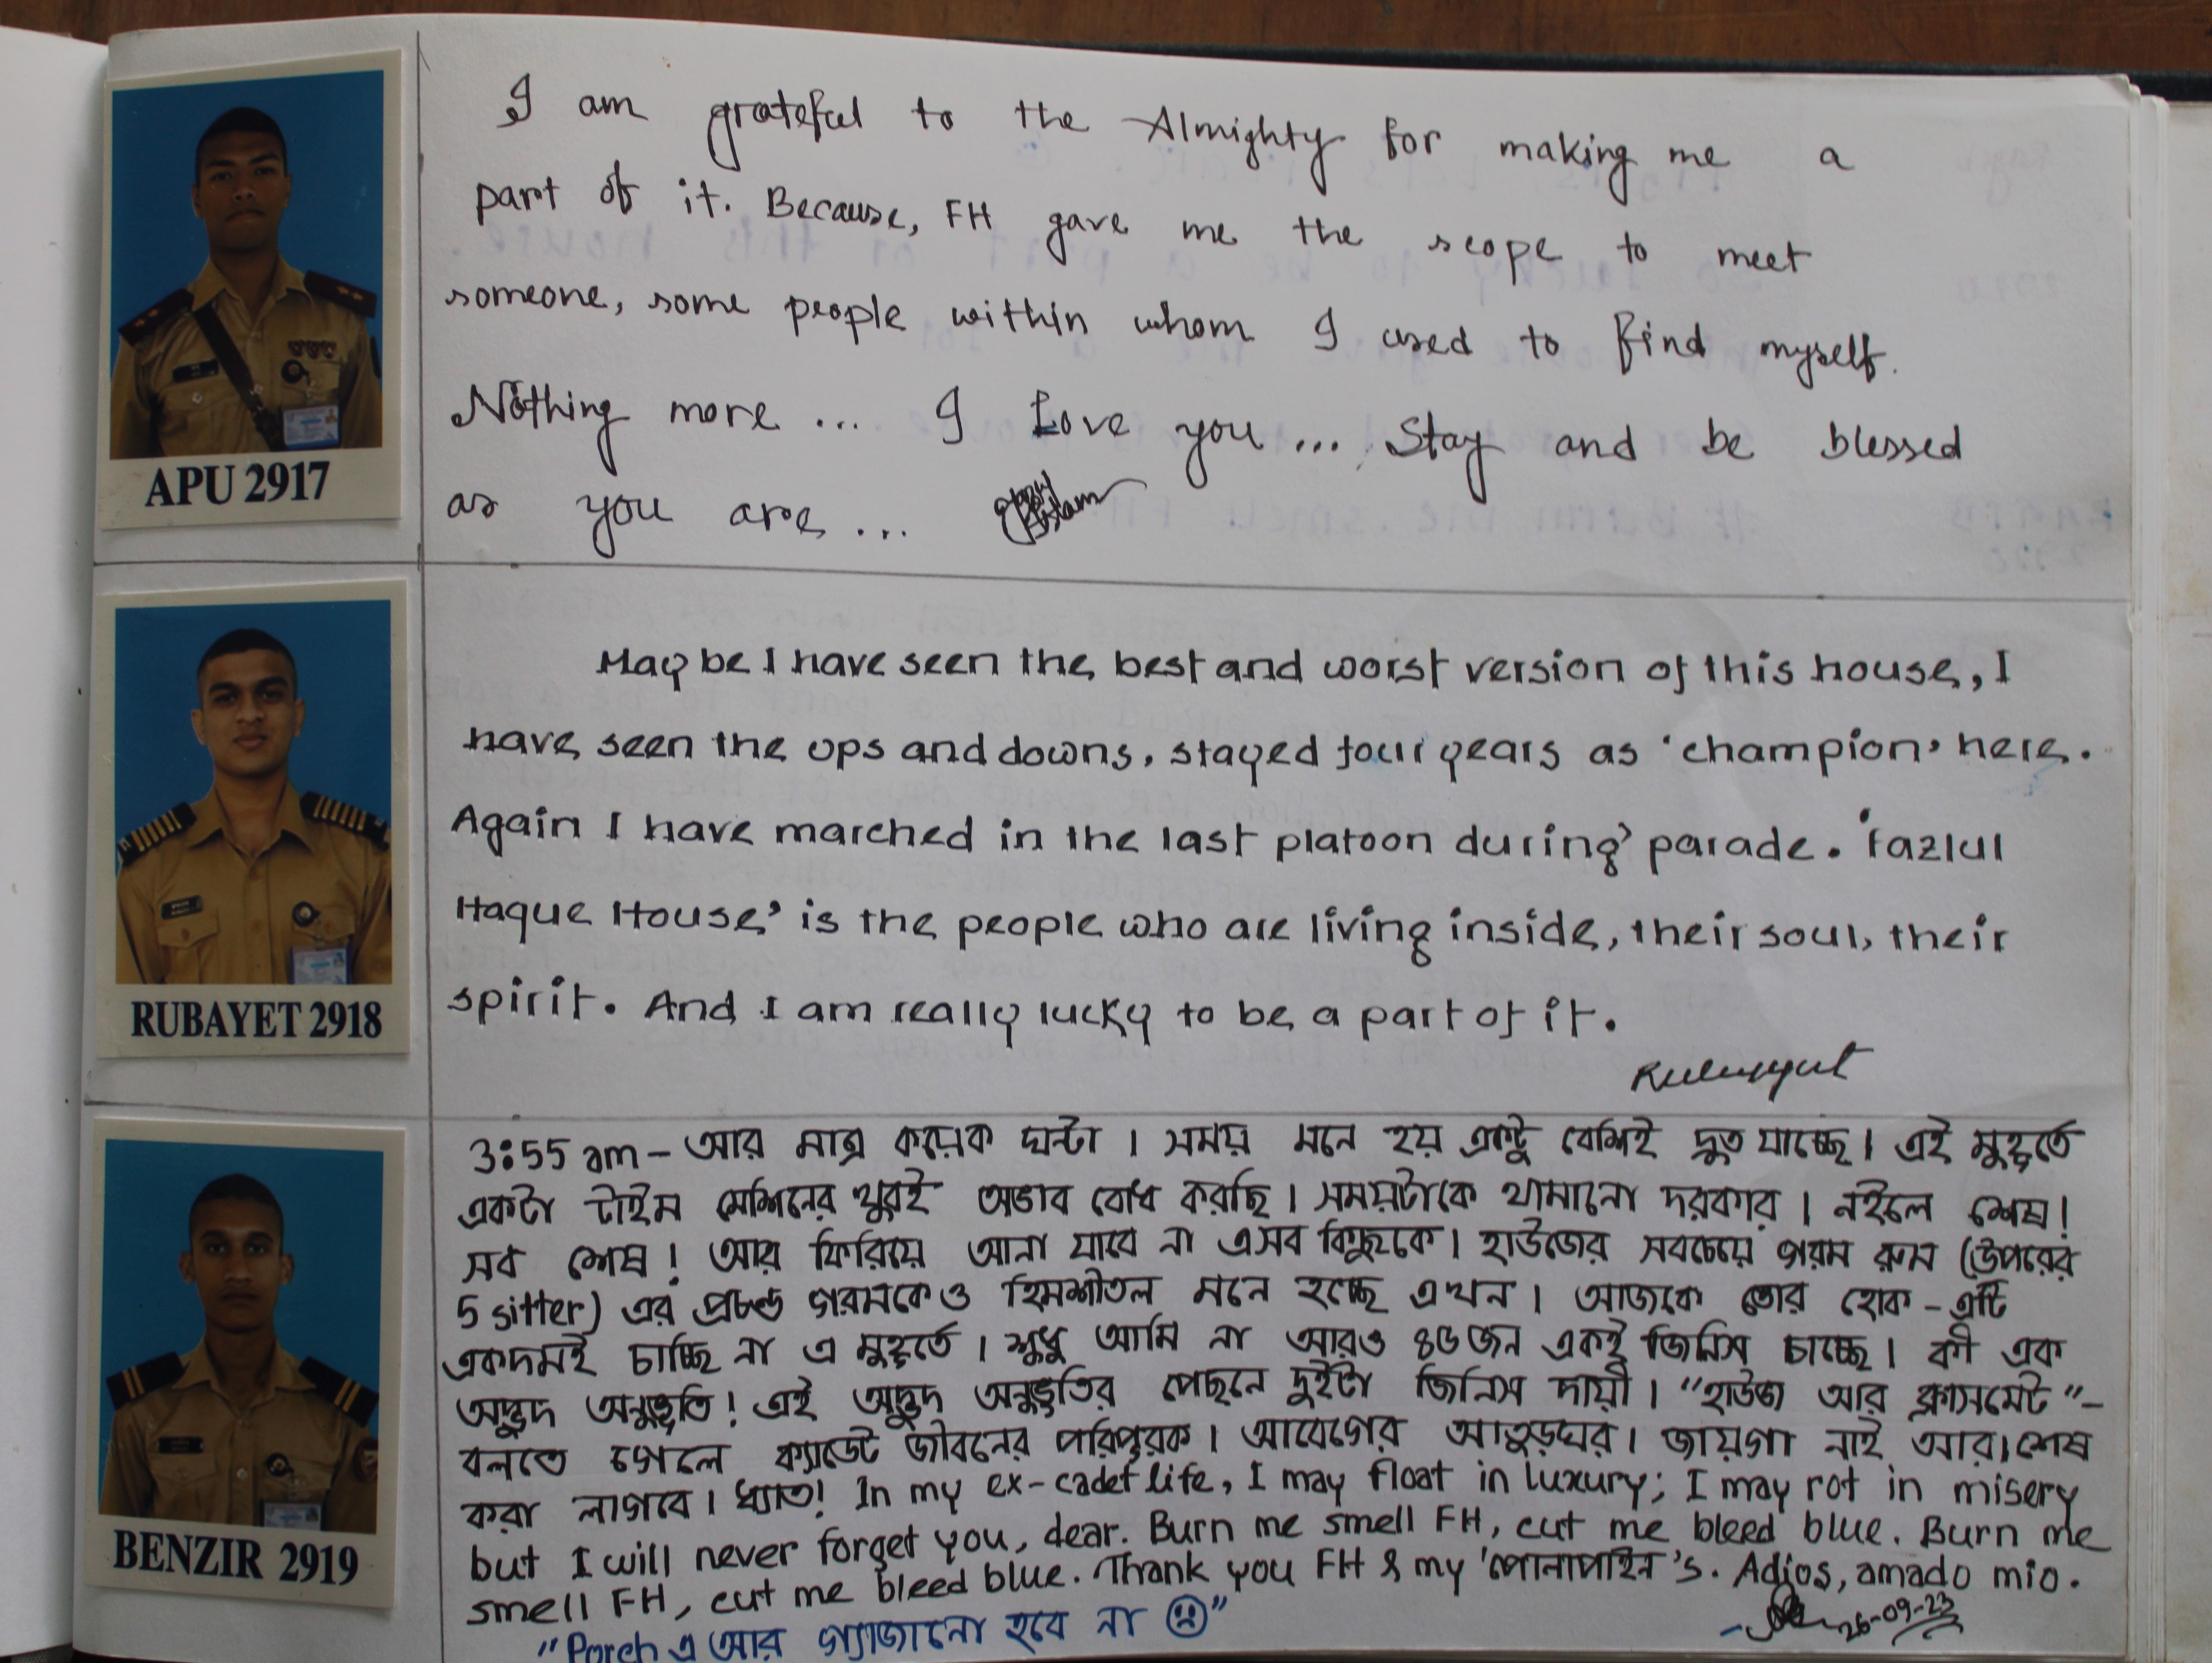 I am grateful to the Almighty for making me a
part of it. Because, FH gave me the scope to meet
someone, some people within whom I used to find myself.
Nothing more ... I Love you ... Stay and be blessed
as you are ...
APU 2917
May be I have seen the best and worst version of this house, I
have seen the ups and downs, stayed four years as 'champion' here.
Again I have marched in the last platoon during parade. 'Fazlul
Haque House' is the people who are living inside, their soul, their
spirit. And I am really lucky to be a part of it.
Rubayet
RUBAYET 2918
3:55 am - আর মাত্র কয়েক ঘন্টা। সময় মনে হয় একটু বেশিই দ্রুত যাচ্ছে। এই মুহূর্তে
একটা টাইম মেশিনের খুবই অভাব বোধ করছি। সময়টাকে থামানো দরকার। নইলে শেষ!
সব শেষ! আর ফিরিয়ে আনা যাবে না এসব কিছুকে। হাউজের সবচেয়ে গরম রুম (উপরের
5 sitter) এর প্রচন্ড গরমকেও হিমশীতল মনে হচ্ছে এখন। আজকে ভোর হোক - এটি
একদমই চাচ্ছি না এ মুহূর্তে। শুধু আমি না আরও ৪৬ জন একই জিনিস চাচ্ছে। কী এক
অদ্ভুদ অনুভূতি! এই অদ্ভুদ অনুভূতির পেছনে দুইটা জিনিস দায়ী। "হাউজ আর ক্লাসমেট" -
বলতে গেলে ক্যাডেট জীবনের পরিপূরক। আবেগের আতুড়ঘর। জায়গা নাই আর। শেষ
করা লাগবে। ধ্যাত! In my ex-cadet life, I may float in luxury; I may rot in misery
but I will never forget you, dear. Burn me smell FH, cut me bleed blue. Burn me
smell FH, cut me bleed blue. Thank you FH & my 'পোলাপাইন's. Adios, amado mio.
26-09-23
"Porch এ আর গ্যাজানো হবে না ☹"
BENZIR 2919